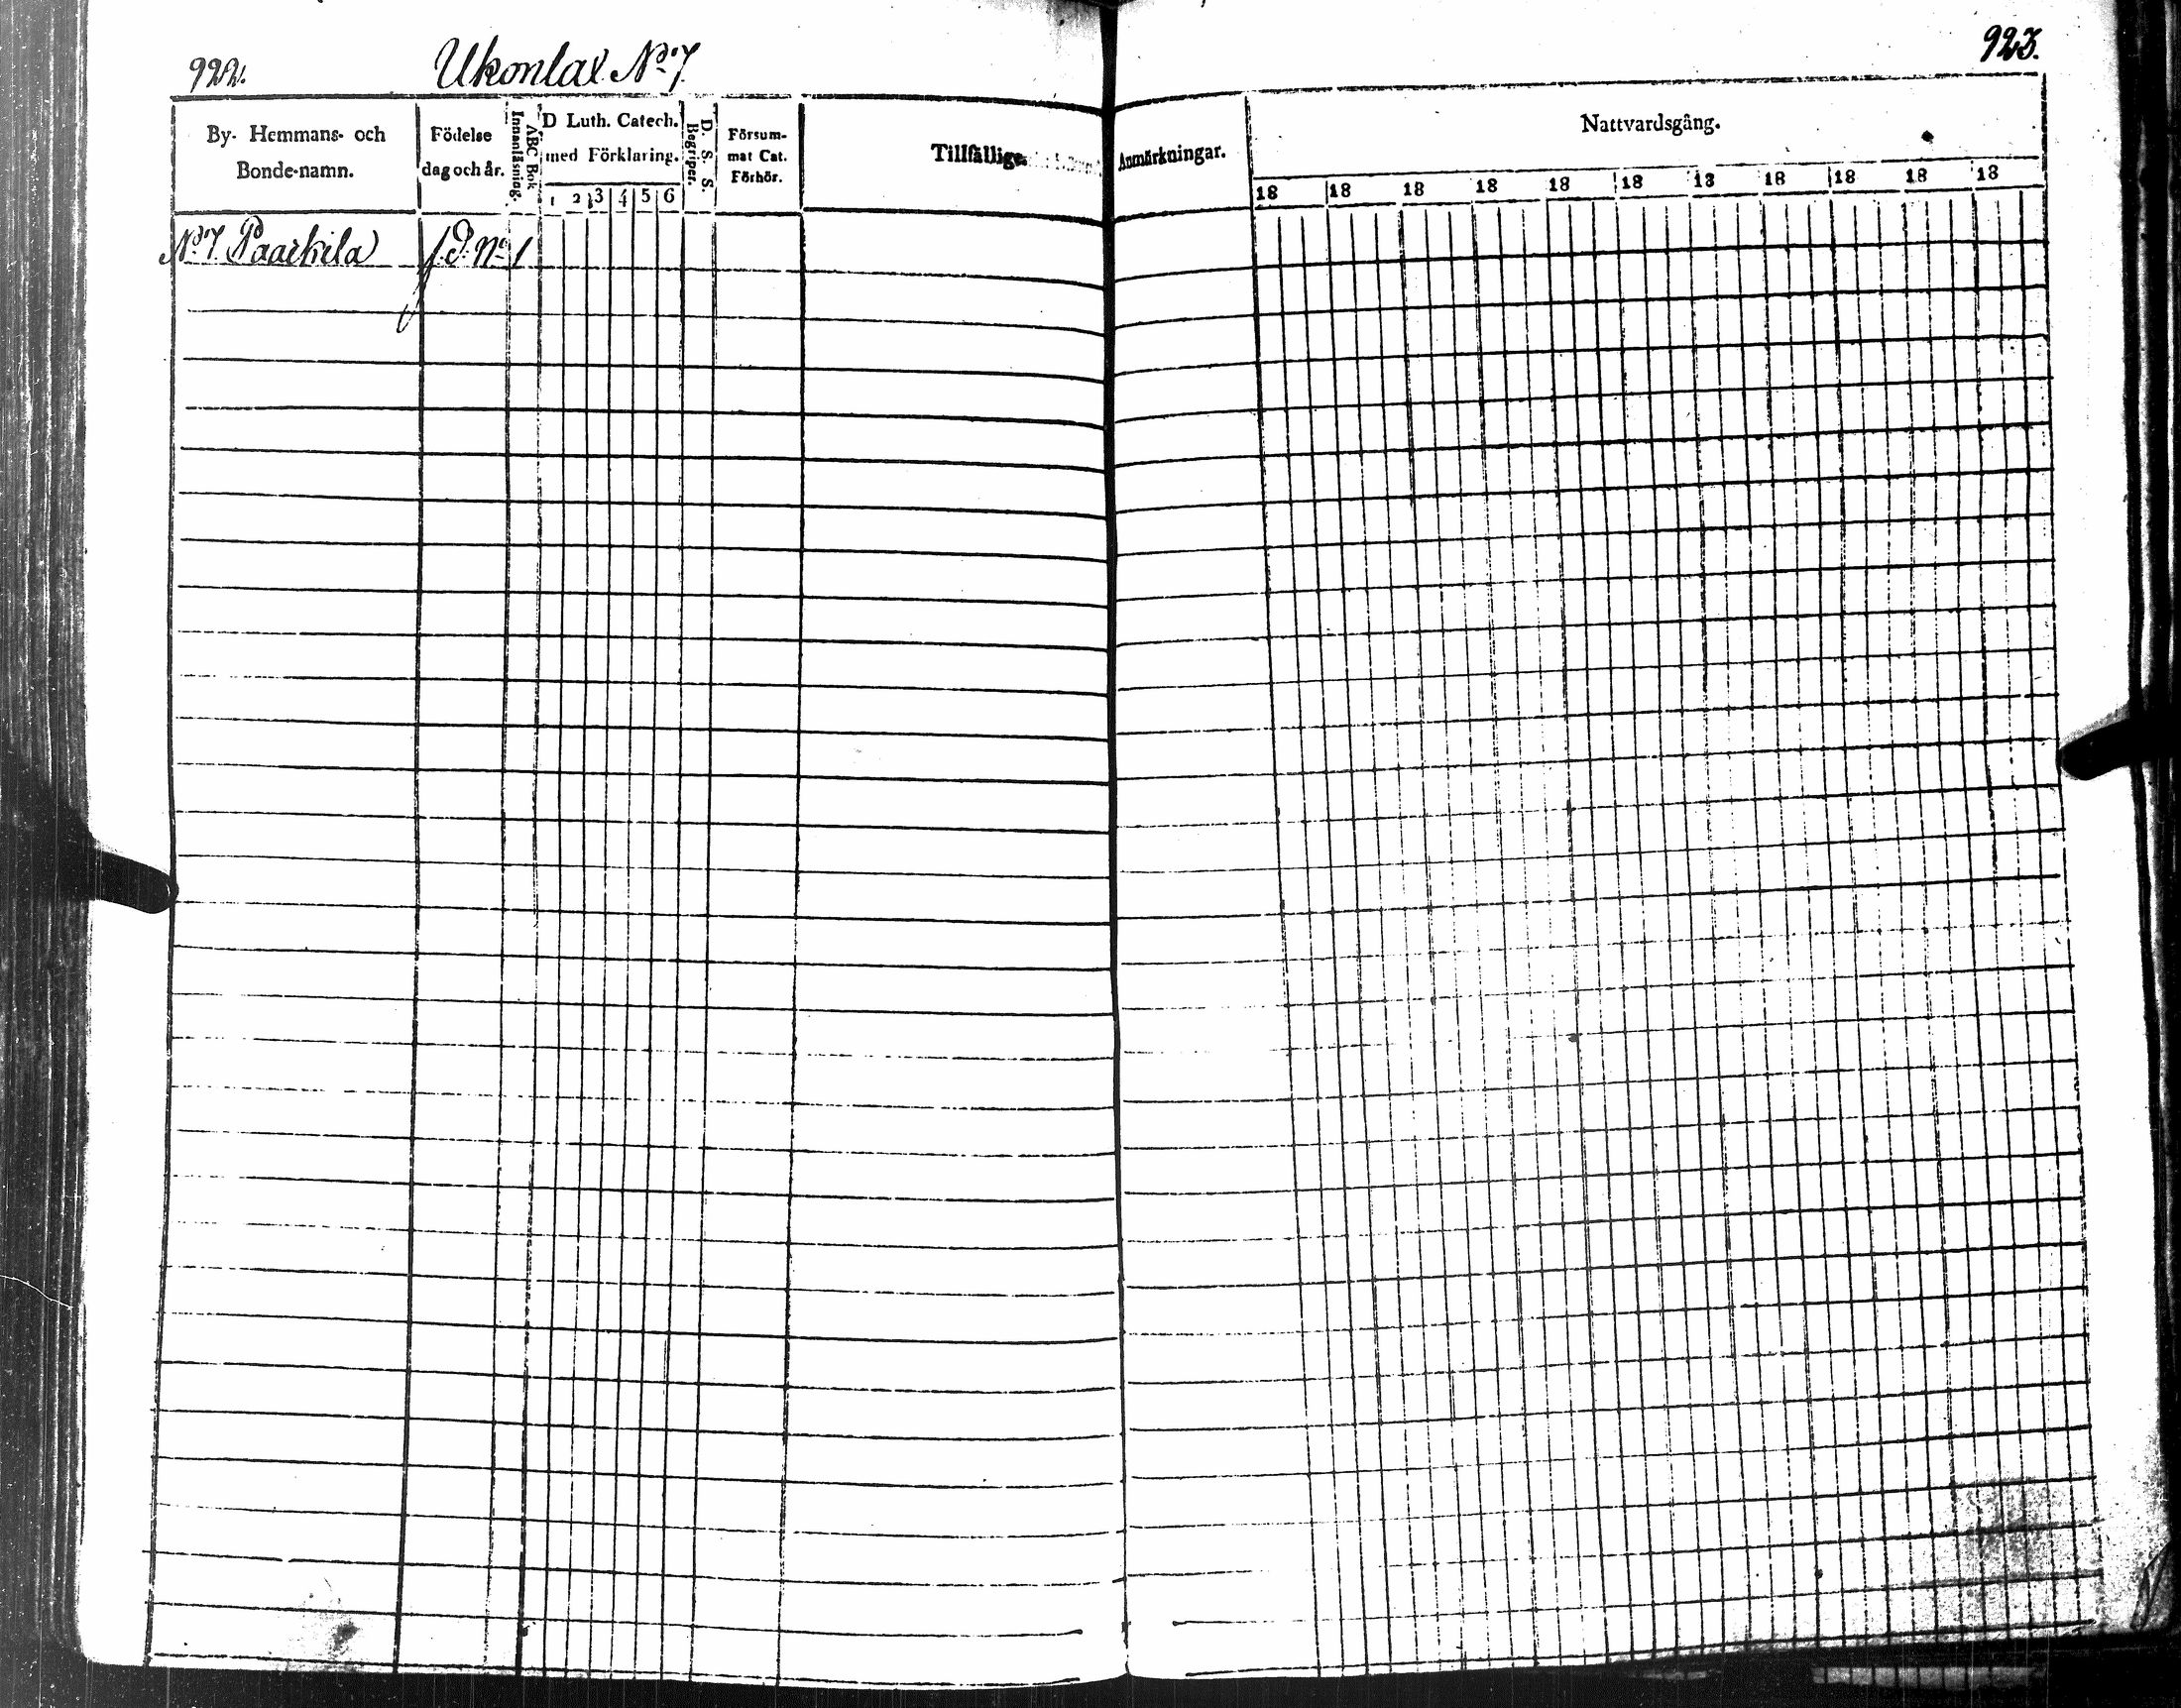 922.
Ukonlax No 7
923.
By- Hemmans- och
Bonde-namn.
Födelse
dag och år.
ABC Bok
Innanläsning.
D Luth. Catech.
med Förklaring.
1 2 3 4 5 6
D. S. S.
Begriper.
Försum-
mat Cat.
Förhör.
Tillfällige
Anmärkningar.
Nattvardsgång.
18 18 18 18 18 18 18 18 18 18 18
No 7 Paarkila
No 1